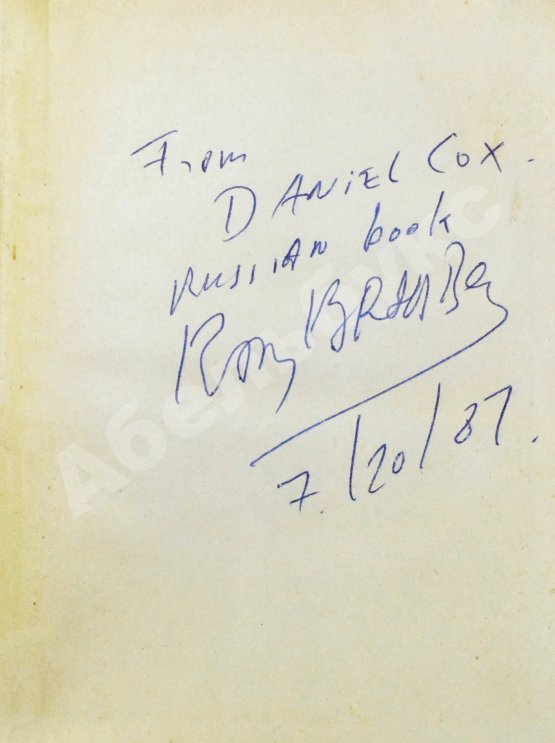 From
DANIEL COX.
RUSSIAN book
Ray BRADBURY
7/20/87.
Абельбукс